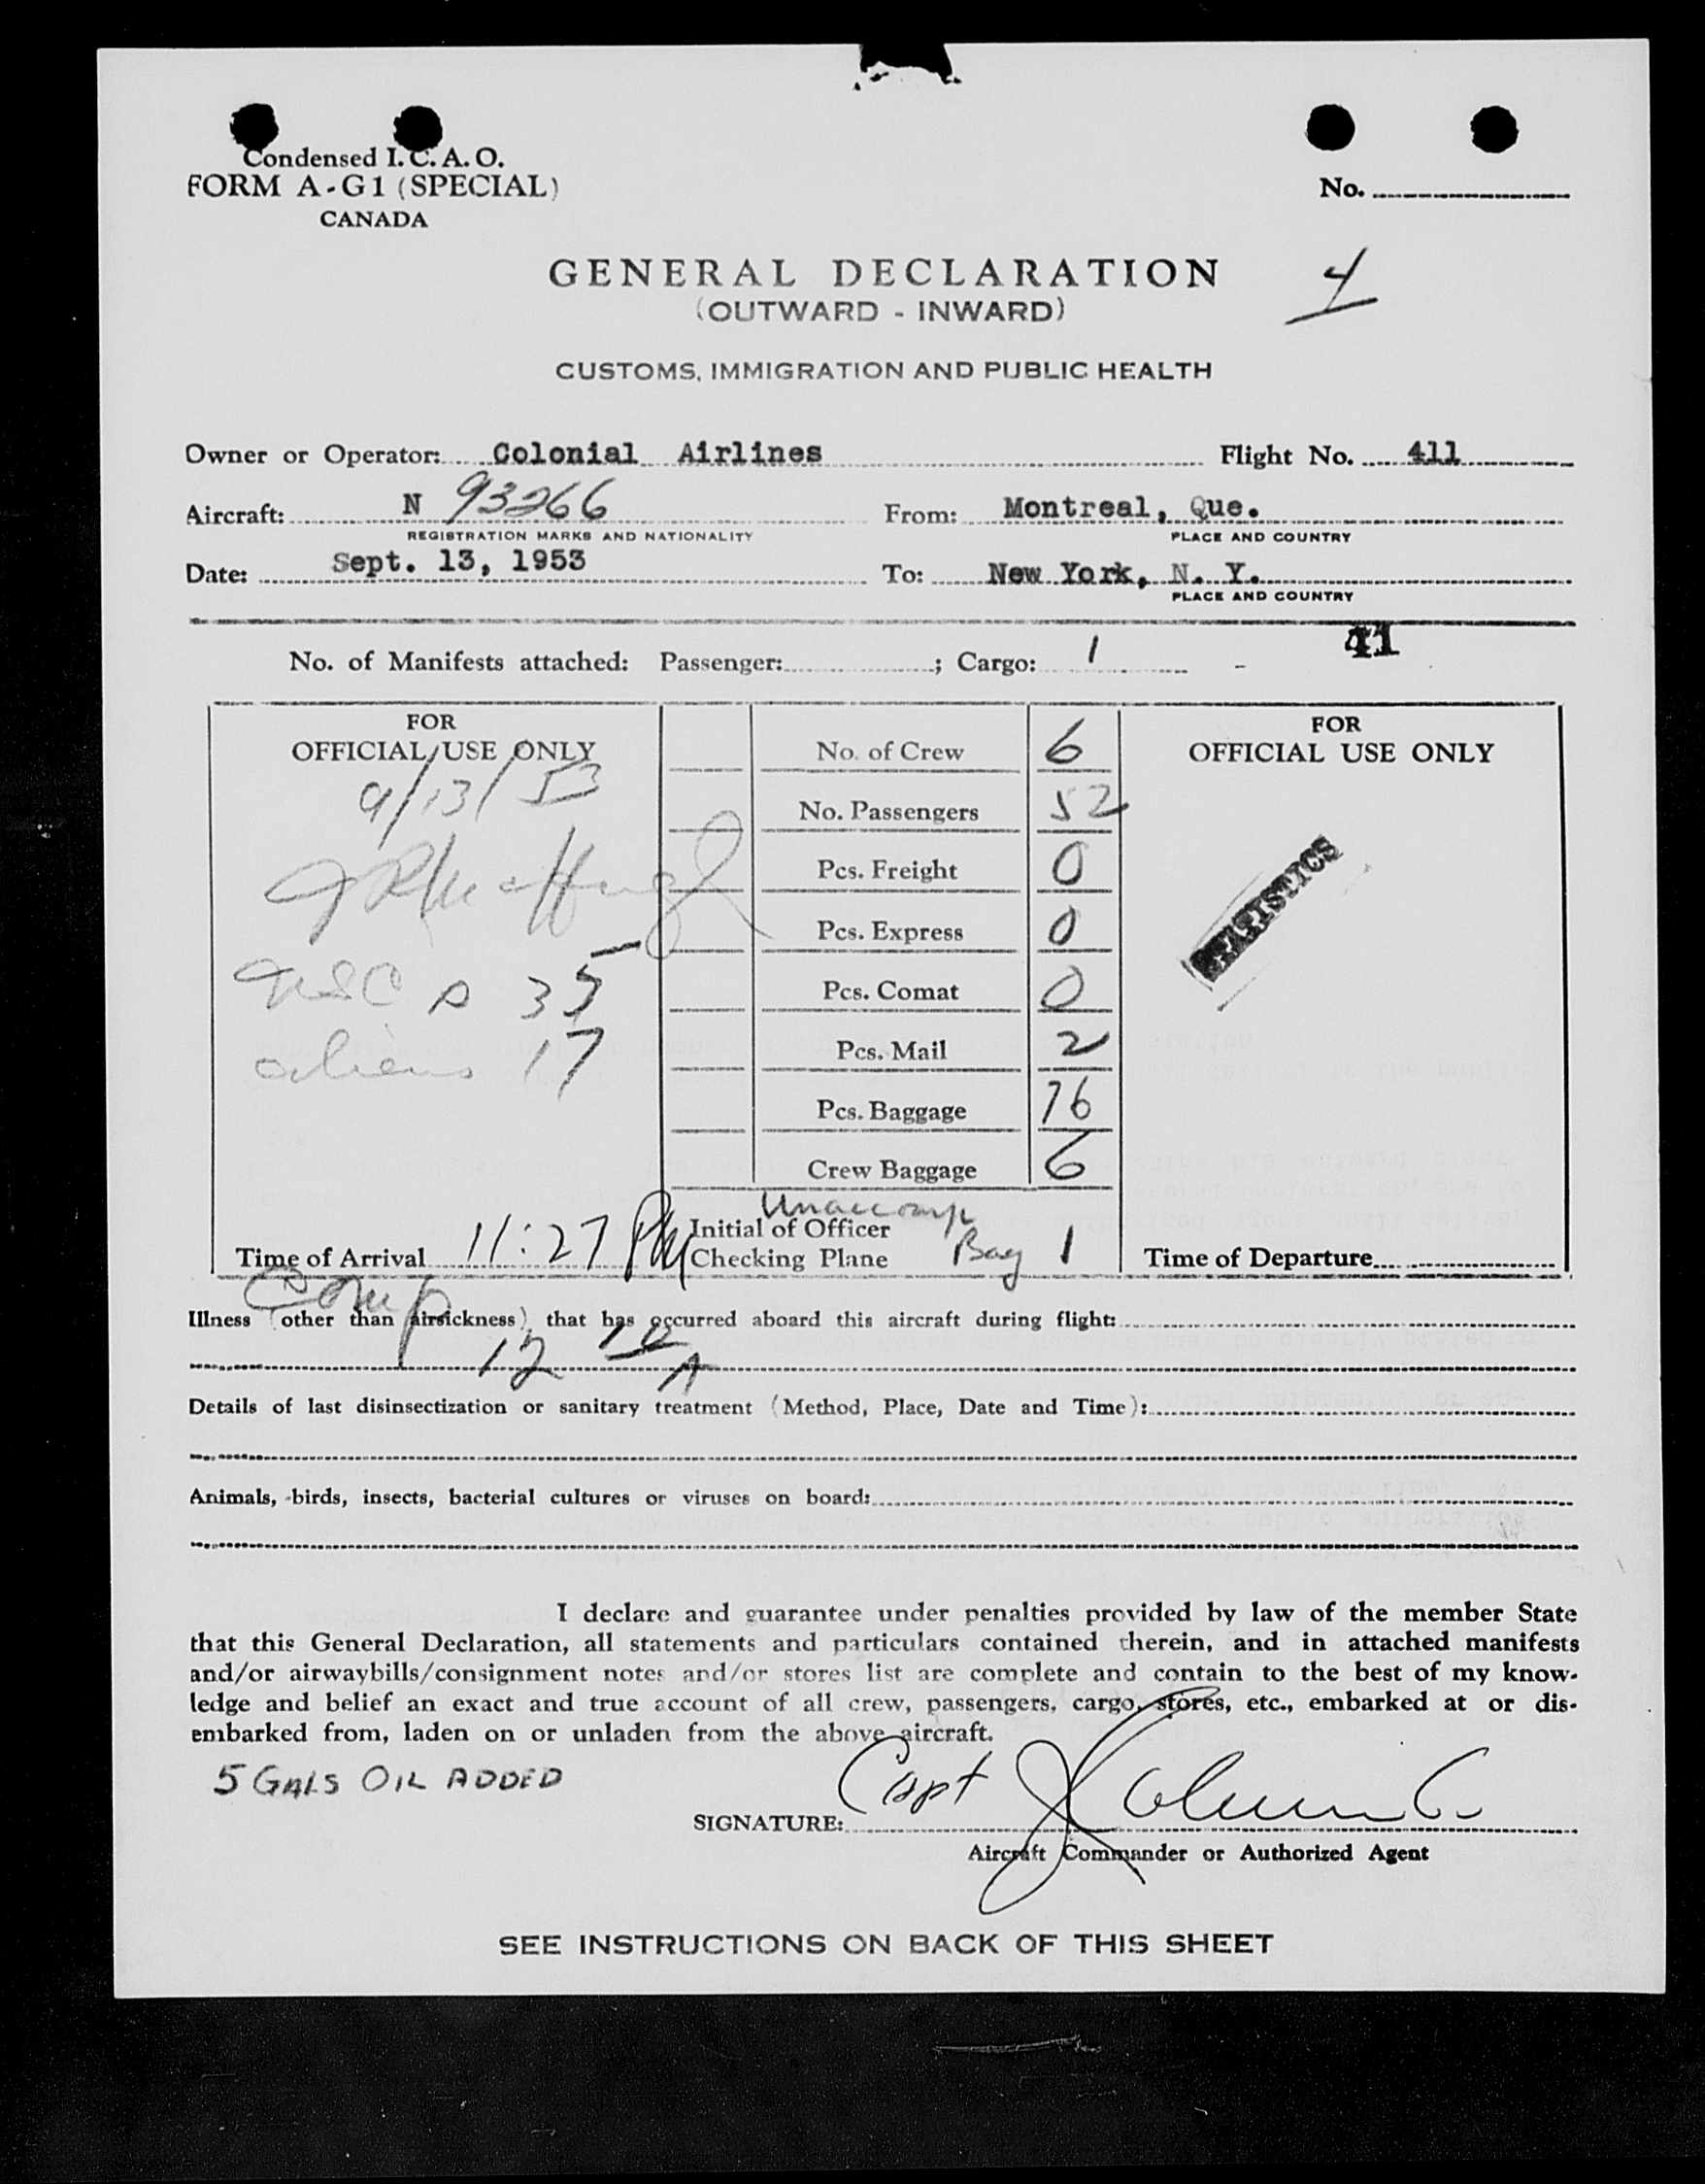 Condensed I. C. A. O.
FORM A-G1 (SPECIAL)
CANADA
No.
GENERAL DECLARATION
4
(OUTWARD - INWARD)
CUSTOMS, IMMIGRATION AND PUBLIC HEALTH
Owner or Operator: Colonial Airlines Flight No. 411
Aircraft: N 93266 From: Montreal, Que.
REGISTRATION MARKS AND NATIONALITY PLACE AND COUNTRY
Date: Sept. 13, 1953 To: New York, N. Y.
PLACE AND COUNTRY
41
No. of Manifests attached: Passenger: ; Cargo: 1 -
FOR
OFFICIAL USE ONLY
9/13/53
35
aliens 17
No. of Crew 6
No. Passengers 52
Pcs. Freight 0
Pcs. Express 0
Pcs. Comat 0
Pcs. Mail 2
Pcs. Baggage 76
Crew Baggage 6
FOR
OFFICIAL USE ONLY
STATISTICS
Unaccomp
Bag 1
Time of Arrival 11:27 PM
Initial of Officer
Checking Plane
Time of Departure
Comp
12 10 A
Illness (other than airsickness) that has occurred aboard this aircraft during flight:
Details of last disinsectization or sanitary treatment (Method, Place, Date and Time):
Animals, birds, insects, bacterial cultures or viruses on board:
I declare and guarantee under penalties provided by law of the member State
that this General Declaration, all statements and particulars contained therein, and in attached manifests
and/or airwaybills/consignment notes and/or stores list are complete and contain to the best of my know-
ledge and belief an exact and true account of all crew, passengers, cargo, stores, etc., embarked at or dis-
embarked from, laden on or unladen from the above aircraft.
5 GALS OIL ADDED
SIGNATURE: Capt
Aircraft Commander or Authorized Agent
SEE INSTRUCTIONS ON BACK OF THIS SHEET